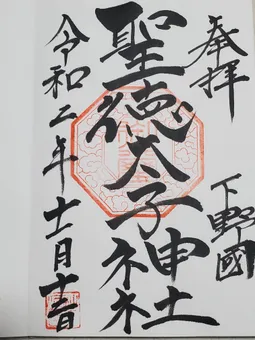 奉拝
下野國
聖徳太子神社
令和二年十一月